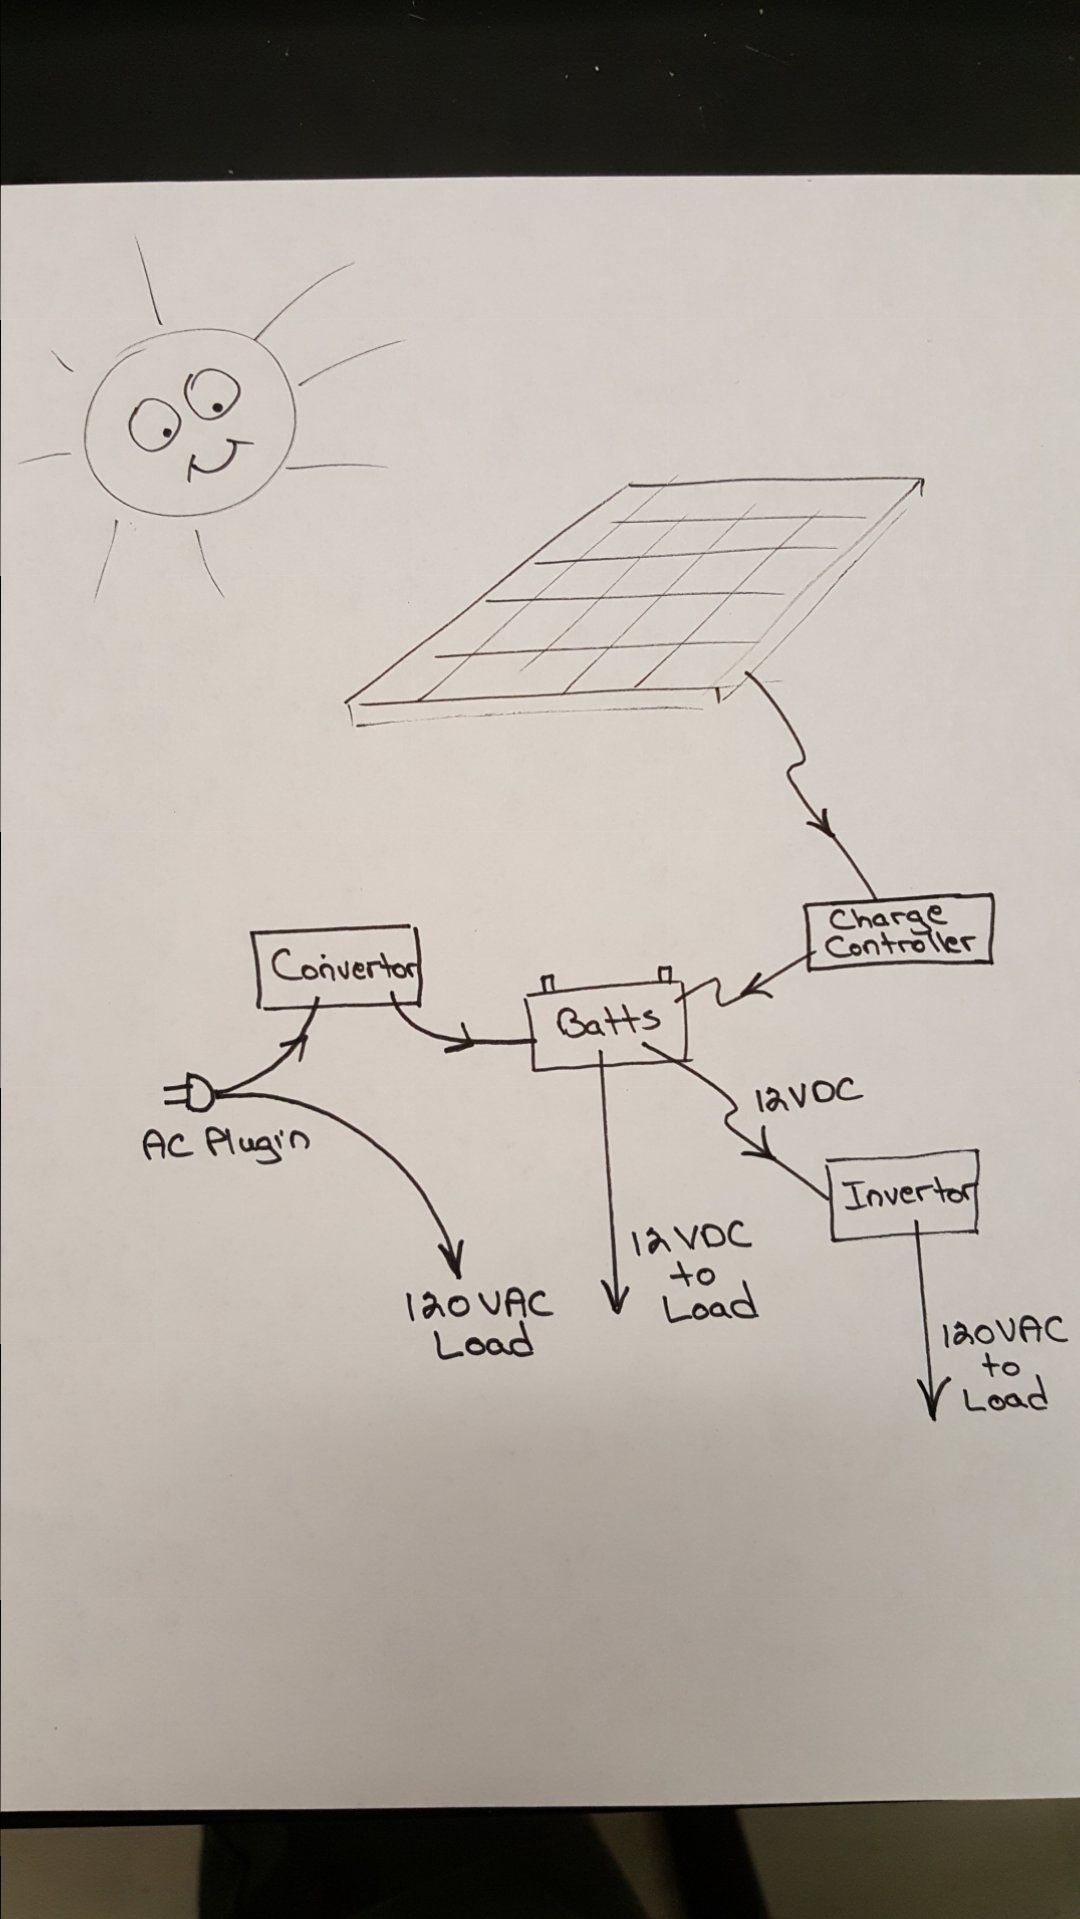 Charge
Controller
Convertor
Batts
12VDC
AC Plugin
Invertor
12 VDC
to
Load
120 VAC
Load
120VAC
to
Load